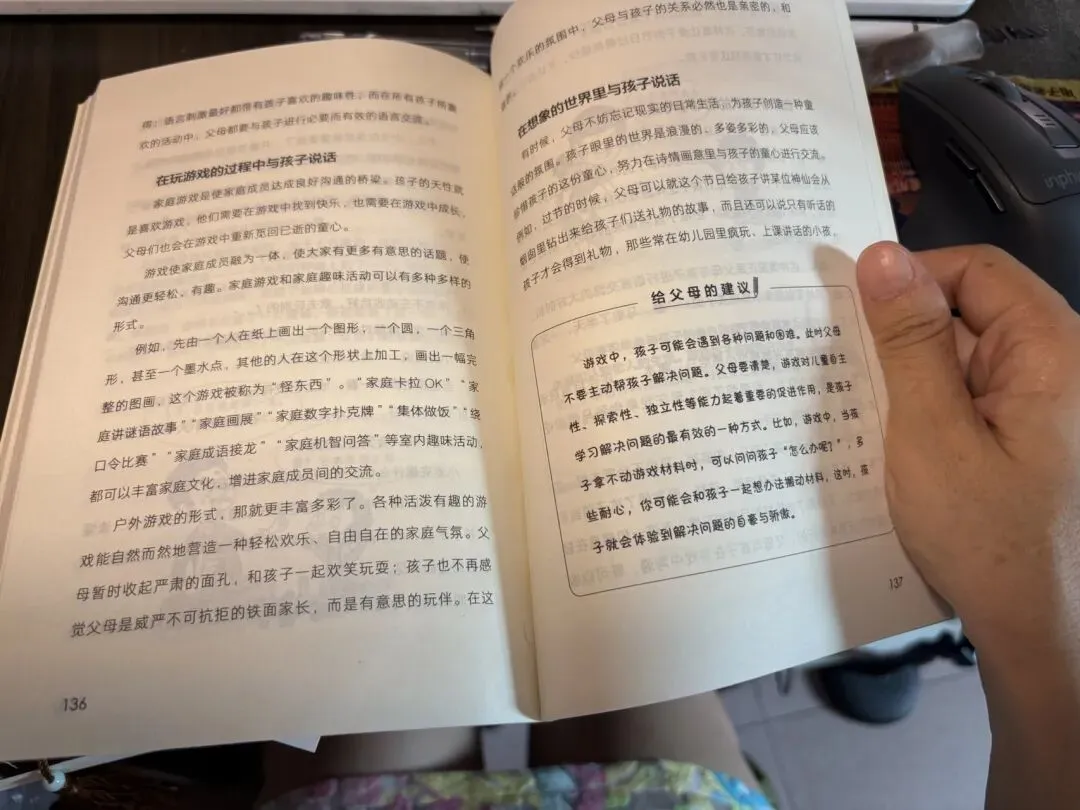 得；语言刺激最好都带有孩子喜欢的趣味性；而在所有孩子所喜
欢的活动中，父母都要与孩子进行必要而有效的语言交流。
在玩游戏的过程中与孩子说话
家庭游戏是使家庭成员达成良好沟通的桥梁。孩子的天性就
是喜欢游戏，他们需要在游戏中找到快乐，也需要在游戏中成长，
父母们也会在游戏中重新觅回已逝的童心。
游戏使家庭成员融为一体，使大家有更多有意思的话题，使
沟通更轻松、有趣。家庭游戏和家庭趣味活动可以有多种多样的
形式。
例如，先由一个人在纸上画出一个图形，一个圆，一个三角
形，甚至一个墨水点，其他的人在这个形状上加工，画出一幅完
整的图画，这个游戏被称为“怪东西”。“家庭卡拉OK”“家
庭讲谜语故事”“家庭画展”“家庭数字扑克牌”“集体做饭”“绕
口令比赛”“家庭成语接龙”“家庭机智问答”等室内趣味活动，
都可以丰富家庭文化，增进家庭成员间的交流。
户外游戏的形式，那就更丰富多彩了。各种活泼有趣的游
戏能自然而然地营造一种轻松欢乐、自由自在的家庭气氛。父
母暂时收起严肃的面孔，和孩子一起欢笑玩耍；孩子也不再感
觉父母是威严不可抗拒的铁面家长，而是有意思的玩伴。在这
136
个欢乐的氛围中，父母与孩子的关系必然也是亲密的，和
在想象的世界里与孩子说话
有时候，父母不妨忘记现实的日常生活，为孩子创造一种童
话般的氛围。孩子眼里的世界是浪漫的、多姿多彩的，父母应该
珍惜孩子的这份童心，努力在诗情画意里与孩子的童心进行交流。
例如，过节的时候，父母可以就这个节日给孩子讲某位神仙会从
烟囱里钻出来给孩子们送礼物的故事，而且还可以说只有听话的
孩子才会得到礼物，那些常在幼儿园里疯玩、上课讲话的小孩，
给父母的建议
游戏中，孩子可能会遇到各种问题和困难。此时父母
不要主动帮孩子解决问题。父母要清楚，游戏对儿童自主
性、探索性、独立性等能力起着重要的促进作用，是孩子
学习解决问题的最有效的一种方式。比如，游戏中，当孩
子拿不动游戏材料时，可以问问孩子“怎么办呢？”，多
些耐心，你可能会和孩子一起想办法搬动材料，这时，孩
子就会体验到解决问题的自豪与骄傲。
137